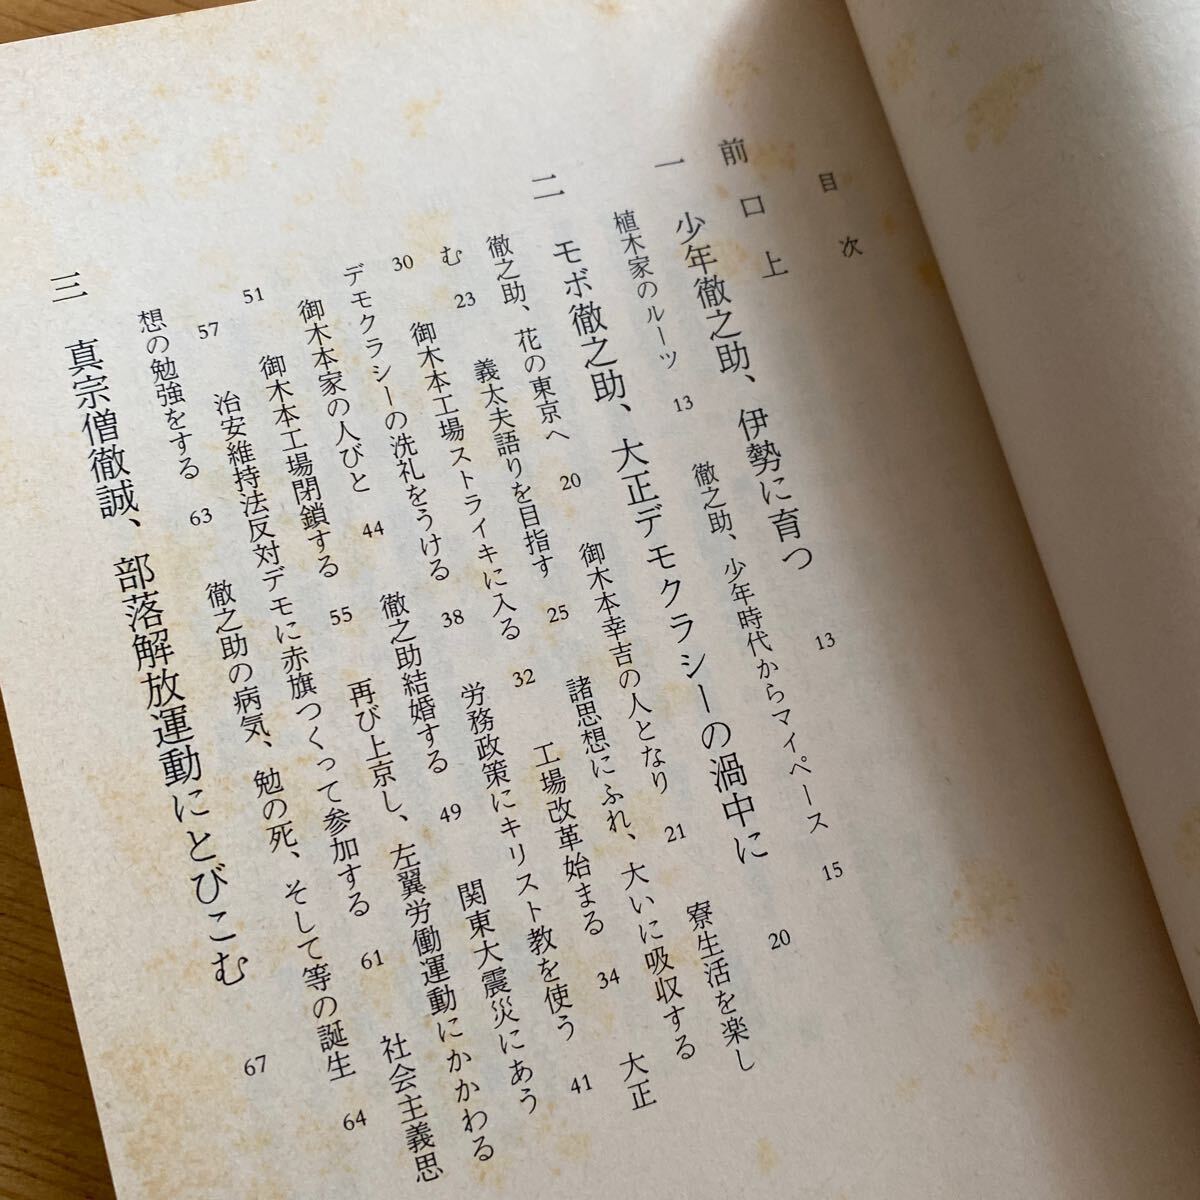 目次
前口上
一 少年徹之助、伊勢に育つ 13
植木家のルーツ 13 徹之助、少年時代からマイペース 15
二 モボ徹之助、大正デモクラシーの渦中に 20
徹之助、花の東京へ 20 御木本幸吉の人となり 21 寮生活を楽し
む 23 義太夫語りを目指す 25 諸思想にふれ、大いに吸収する
30 御木本工場ストライキに入る 32 工場改革始まる 34 大正
デモクラシーの洗礼をうける 38 労務政策にキリスト教を使う 41
御木本家の人びと 44 徹之助結婚する 49 関東大震災にあう
51 御木本工場閉鎖する 55 再び上京し、左翼労働運動にかかわる
57 治安維持法反対デモに赤旗つくって参加する 61 社会主義思
想の勉強をする 63 徹之助の病気、勉の死、そして等の誕生 64
三 真宗僧徹誠、部落解放運動にとびこむ 67